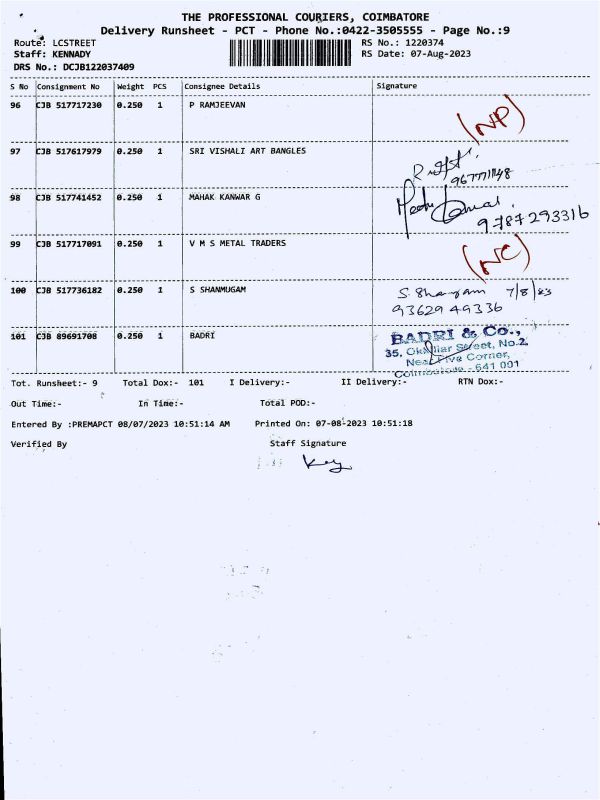 THE PROFESSIONAL COURIERS, COIMBATORE
Delivery Runsheet - PCT - Phone No.:0422-3505555 - Page No.:9
Route: LCSTREET RS No.: 1220374
Staff: KENNADY RS Date: 07-Aug-2023
DRS No.: DCJB122037409
S No Consignment No Weight PCS Consignee Details Signature
96 CJB 517717230 0.250 1 P RAMJEEVAN (NP)
97 CJB 517617979 0.250 1 SRI VISHALI ART BANGLES
98 CJB 517741452 0.250 1 MAHAK KANWAR G
9787293316
99 CJB 517717091 0.250 1 V M S METAL TRADERS (NC)
100 CJB 517736182 0.250 1 S SHANMUGAM 7/8/23
93629 49336
101 CJB 89691708 0.250 1 BADRI BADRI & Co.,
35, Street, No.2,
Near Five Corner,
Coimbatore - 641 001
Tot. Runsheet:- 9 Total Dox:- 101 I Delivery:- II Delivery:- RTN Dox:-
Out Time:- In Time:- Total POD:-
Entered By :PREMAPCT 08/07/2023 10:51:14 AM Printed On: 07-08-2023 10:51:18
Verified By Staff Signature